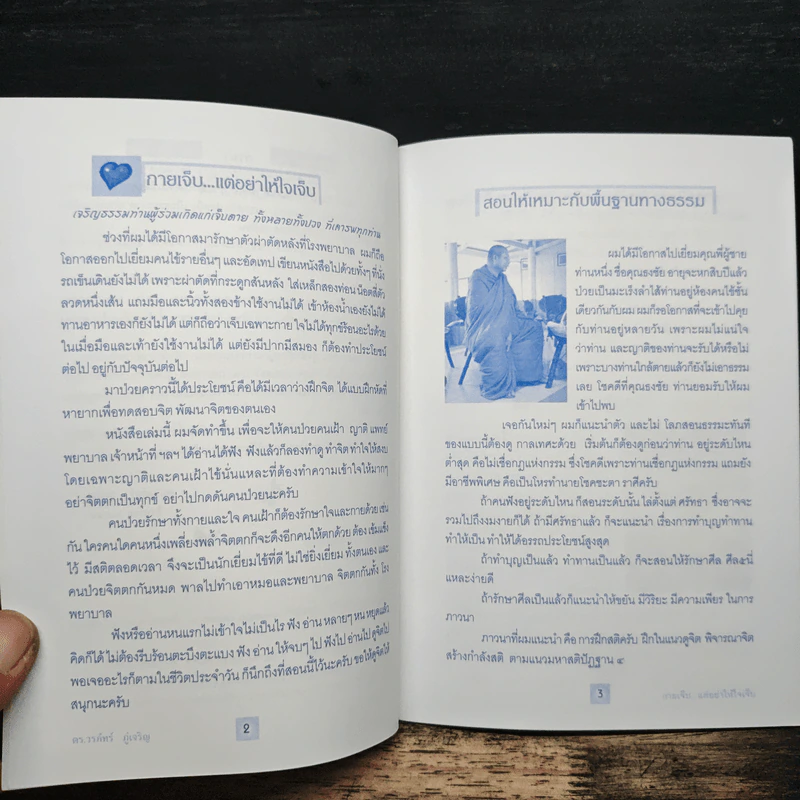 กายเจ็บ...แต่อย่าให้ใจเจ็บ
เจริญธรรมท่านผู้ร่วมเกิดแก่เจ็บตาย ทั้งหลายทั้งปวง ที่เคารพทุกท่าน
ช่วงที่ผมได้มีโอกาสมารักษาตัวผ่าตัดหลังที่โรงพยาบาล ผมก็ถือ
โอกาสออกไปเยี่ยมคนไข้รายอื่นๆ และอัดเทป เขียนหนังสือไปด้วยทั้งๆ ที่นั่ง
รถเข็นเดินยังไม่ได้ เพราะผ่าตัดที่กระดูกสันหลัง ใส่เหล็กสองท่อน น็อตสี่ตัว
ลวดหนึ่งเส้น แถมมือและนิ้วทั้งสองข้างใช้งานไม่ได้ เข้าห้องน้ำเองยังไม่ได้
ทานอาหารเองก็ยังไม่ได้ แต่ก็ถือว่าเจ็บเฉพาะกาย ใจไม่ได้ทุกข์ร้อนอะไรด้วย
ในเมื่อมือและเท้ายังใช้งานไม่ได้ แต่ยังมีปากมีสมอง ก็ต้องทำประโยชน์
ต่อไป อยู่กับปัจจุบันต่อไป
มาป่วยคราวนี้ได้ประโยชน์ คือได้มีเวลาว่างฝึกจิต ได้แบบฝึกหัดที่
หายากเพื่อทดสอบจิต พัฒนาจิตของตนเอง
หนังสือเล่มนี้ ผมจัดทำขึ้น เพื่อจะให้คนป่วยคนเฝ้า ญาติ แพทย์
พยาบาล เจ้าหน้าที่ ฯลฯ ได้อ่านได้ฟัง ฟังแล้วก็ลองทำดู ทำจิตทำใจให้สงบ
โดยเฉพาะญาติและคนเฝ้าไข้นั่นแหละที่ต้องทำความเข้าใจให้มากๆ
อย่าจิตตกเป็นทุกข์ อย่าไปกดดันคนป่วยนะครับ
คนป่วยรักษาทั้งกายและใจ คนเฝ้าก็ต้องรักษาใจและกายด้วย เช่น
กัน ใครคนใดคนหนึ่งเพลี่ยงพล้ำจิตตกก็จะดึงอีกคนให้ตกด้วย ต้อง เข้มแข็ง
ไว้ มีสติตลอดเวลา จึงจะเป็นนักเยี่ยมไข้ที่ดี ไม่ใช่ยิ่งเยี่ยม ทั้งตนเอง และ
คนป่วยจิตตกกันหมด พาลไปทำเอาหมอและพยาบาล จิตตกกันทั้ง โรง
พยาบาล
ฟังหรืออ่านหนแรกไม่เข้าใจไม่เป็นไร ฟัง อ่าน หลายๆ หน หยุดแล้ว
คิดก็ได้ ไม่ต้องรีบร้อนตะบึงตะแบง ฟัง อ่าน ให้จบๆ ไป ฟังไป อ่านไป ดูจิตไป
พอเจออะไรก็ตามในชีวิตประจำวัน ก็นึกถึงที่สอนนี้ไว้นะครับ ขอให้ดูจิตให้
สนุกนะครับ
ดร.วรภัทร์ ภู่เจริญ
2
สอนให้เหมาะกับพื้นฐานทางธรรม
ผมได้มีโอกาสไปเยี่ยมคุณพี่ผู้ชาย
ท่านหนึ่ง ชื่อคุณธงชัย อายุจะหกสิบปีแล้ว
ป่วยเป็นมะเร็งลำไส้ท่านอยู่ห้องคนไข้ชั้น
เดียวกันกับผม ผมก็รอโอกาสที่จะเข้าไปคุย
กับท่านอยู่หลายวัน เพราะผมไม่แน่ใจ
ว่าท่าน และญาติของท่านจะรับได้หรือไม่
เพราะบางท่านใกล้ตายแล้วก็ยังไม่เอาธรรม
เลย โชคดีที่คุณธงชัย ท่านยอมรับให้ผม
เข้าไปพบ
เจอกันใหม่ๆ ผมก็แนะนำตัว และไม่ โลภสอนธรรมะทันที
ของแบบนี้ต้องดู กาลเทศะด้วย เริ่มต้นก็ต้องดูก่อนว่าท่าน อยู่ระดับไหน
ต่ำสุด คือไม่เชื่อกฎแห่งกรรม ซึ่งโชคดีเพราะท่านเชื่อกฎแห่งกรรม แถมยัง
มีอาชีพพิเศษ คือเป็นโหรทำนายโชคชะตา ราศีครับ
ถ้าคนฟังอยู่ระดับไหน ก็สอนระดับนั้น ไล่ตั้งแต่ ศรัทธา ซึ่งอาจจะ
รวมไปถึงงมงายก็ได้ ถ้ามีศรัทธาแล้ว ก็จะแนะนำ เรื่องการทำบุญทำทาน
ทำให้เป็น ทำให้ได้อรรถประโยชน์สูงสุด
ถ้าทำบุญเป็นแล้ว ทำทานเป็นแล้ว ก็จะสอนให้รักษาศีล ศีล๕นี่
แหละง่ายดี
ถ้ารักษาศีลเป็นแล้วก็แนะนำให้ขยัน มีวิริยะ มีความเพียร ในการ
ภาวนา
ภาวนาที่ผมแนะนำ คือ การฝึกสติครับ ฝึกในแนวดูจิต พิจารณาจิต
สร้างกำลังสติ ตามแนวมหาสติปัฏฐาน ๔
3
กายเจ็บ.. แต่อย่าให้ใจเจ็บ